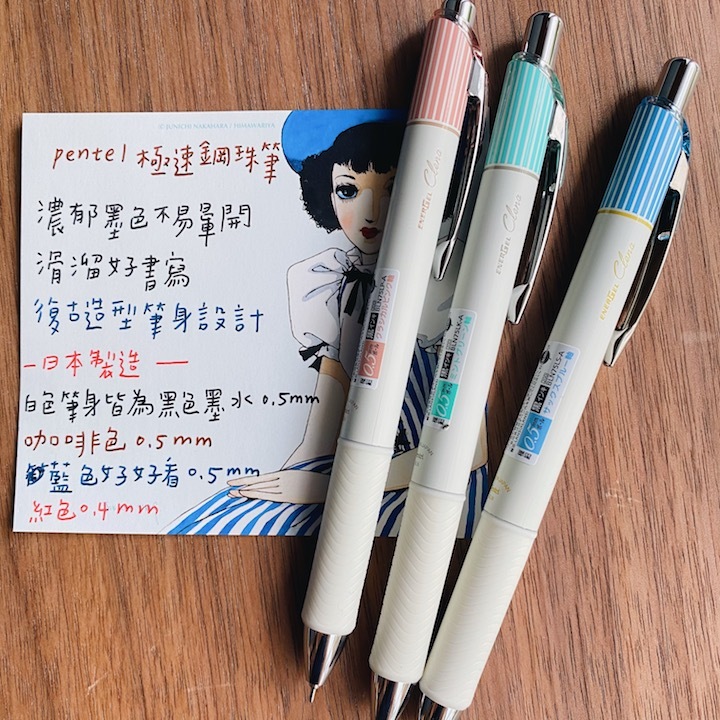 © JUNICHI NAKAHARA / HIMAWARIYA
pentel 極速鋼珠筆
濃郁墨色不易暈開
滑溜好書寫
復古造型筆身設計
一日本製造一
白色筆身皆為黑色墨水0.5mm
咖啡色0.5mm
藍色好好看0.5mm
紅色0.4mm
ENERGEL Clena
0.5
ENERGEL Clena
0.5
ENERGEL Clena
0.5
サックスブルー軸